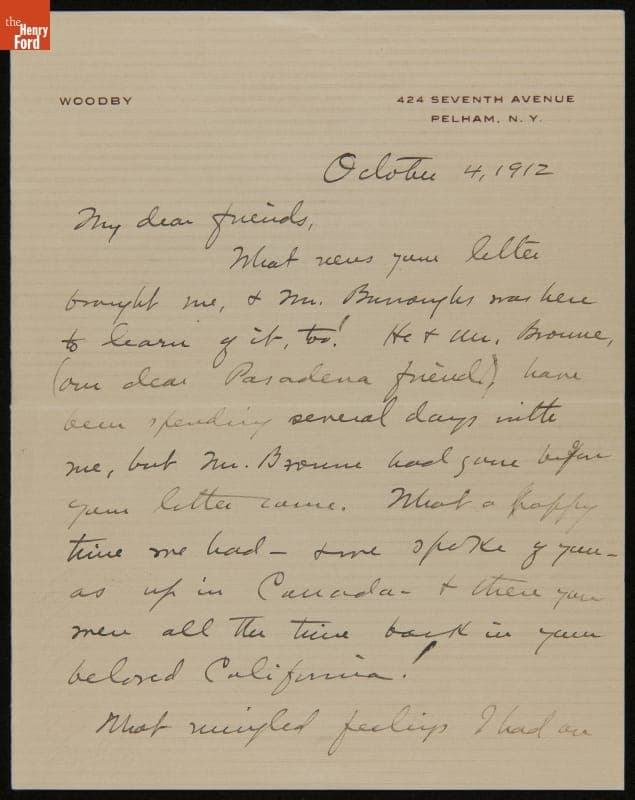 the Henry Ford
WOODBY
424 SEVENTH AVENUE
PELHAM, N. Y.
October 4, 1912
My dear friends,
What news your letter
brought me, & Mr. Burroughs was here
to learn of it, too! He & Mr. Browne,
(our dear Pasadena friend), have
been spending several days with
me, but Mr. Browne had gone before
your letter came. What a happy
time we had – & we spoke of you –
as up in Canada – & there you
were all the time back in your
beloved California!
What mingled feelings I had on